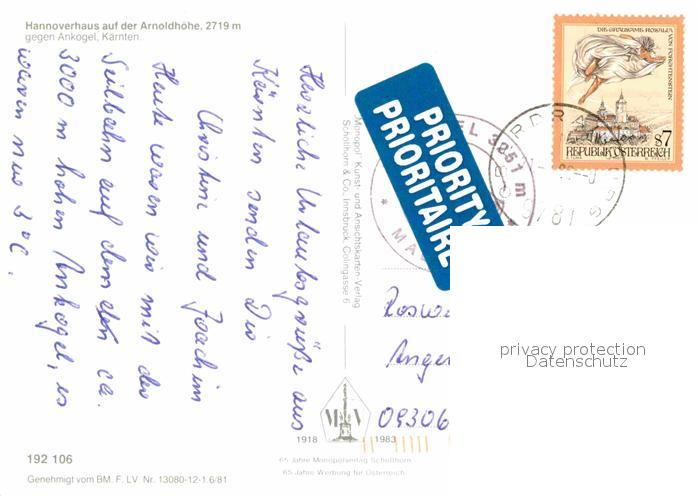 Hannoverhaus auf der Arnoldhöhe, 2719 m
gegen Ankogel, Kärnten.
Herzliche Urlaubsgrüße aus
Kärnten senden Dir
Christine und Joachim
Heute waren wir mit der
Seilbahn auf dem ca.
3000 m hohen Ankogel, es
waren nur 3°C.
192 106
Genehmigt vom BM. F. LV Nr. 13080-12-1.6/81
„Monopol" Kunst- und Ansichtskarten-Verlag
Schöllhorn & Co., Innsbruck, Colingasse 6
1918 1983
65 Jahre Monopolverlag Schöllhorn
65 Jahre Werbung für Österreich
PRIORITY
PRIORITAIRE
3251 m
MA
DIE GRAUSAME ROSALIA
VON FORCHTENSTEIN
S7
REPUBLIK ÖSTERREICH
9781
Anger
09306
privacy protection
Datenschutz